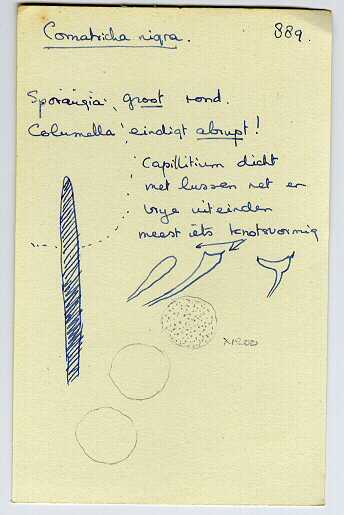 Comatricha nigra. 889.
Sporangia, groot rond.
Columella eindigt abrupt!
Capillitium dicht
met lussen net er
vrye uiteinden
meest iets knotsvormig
x1200